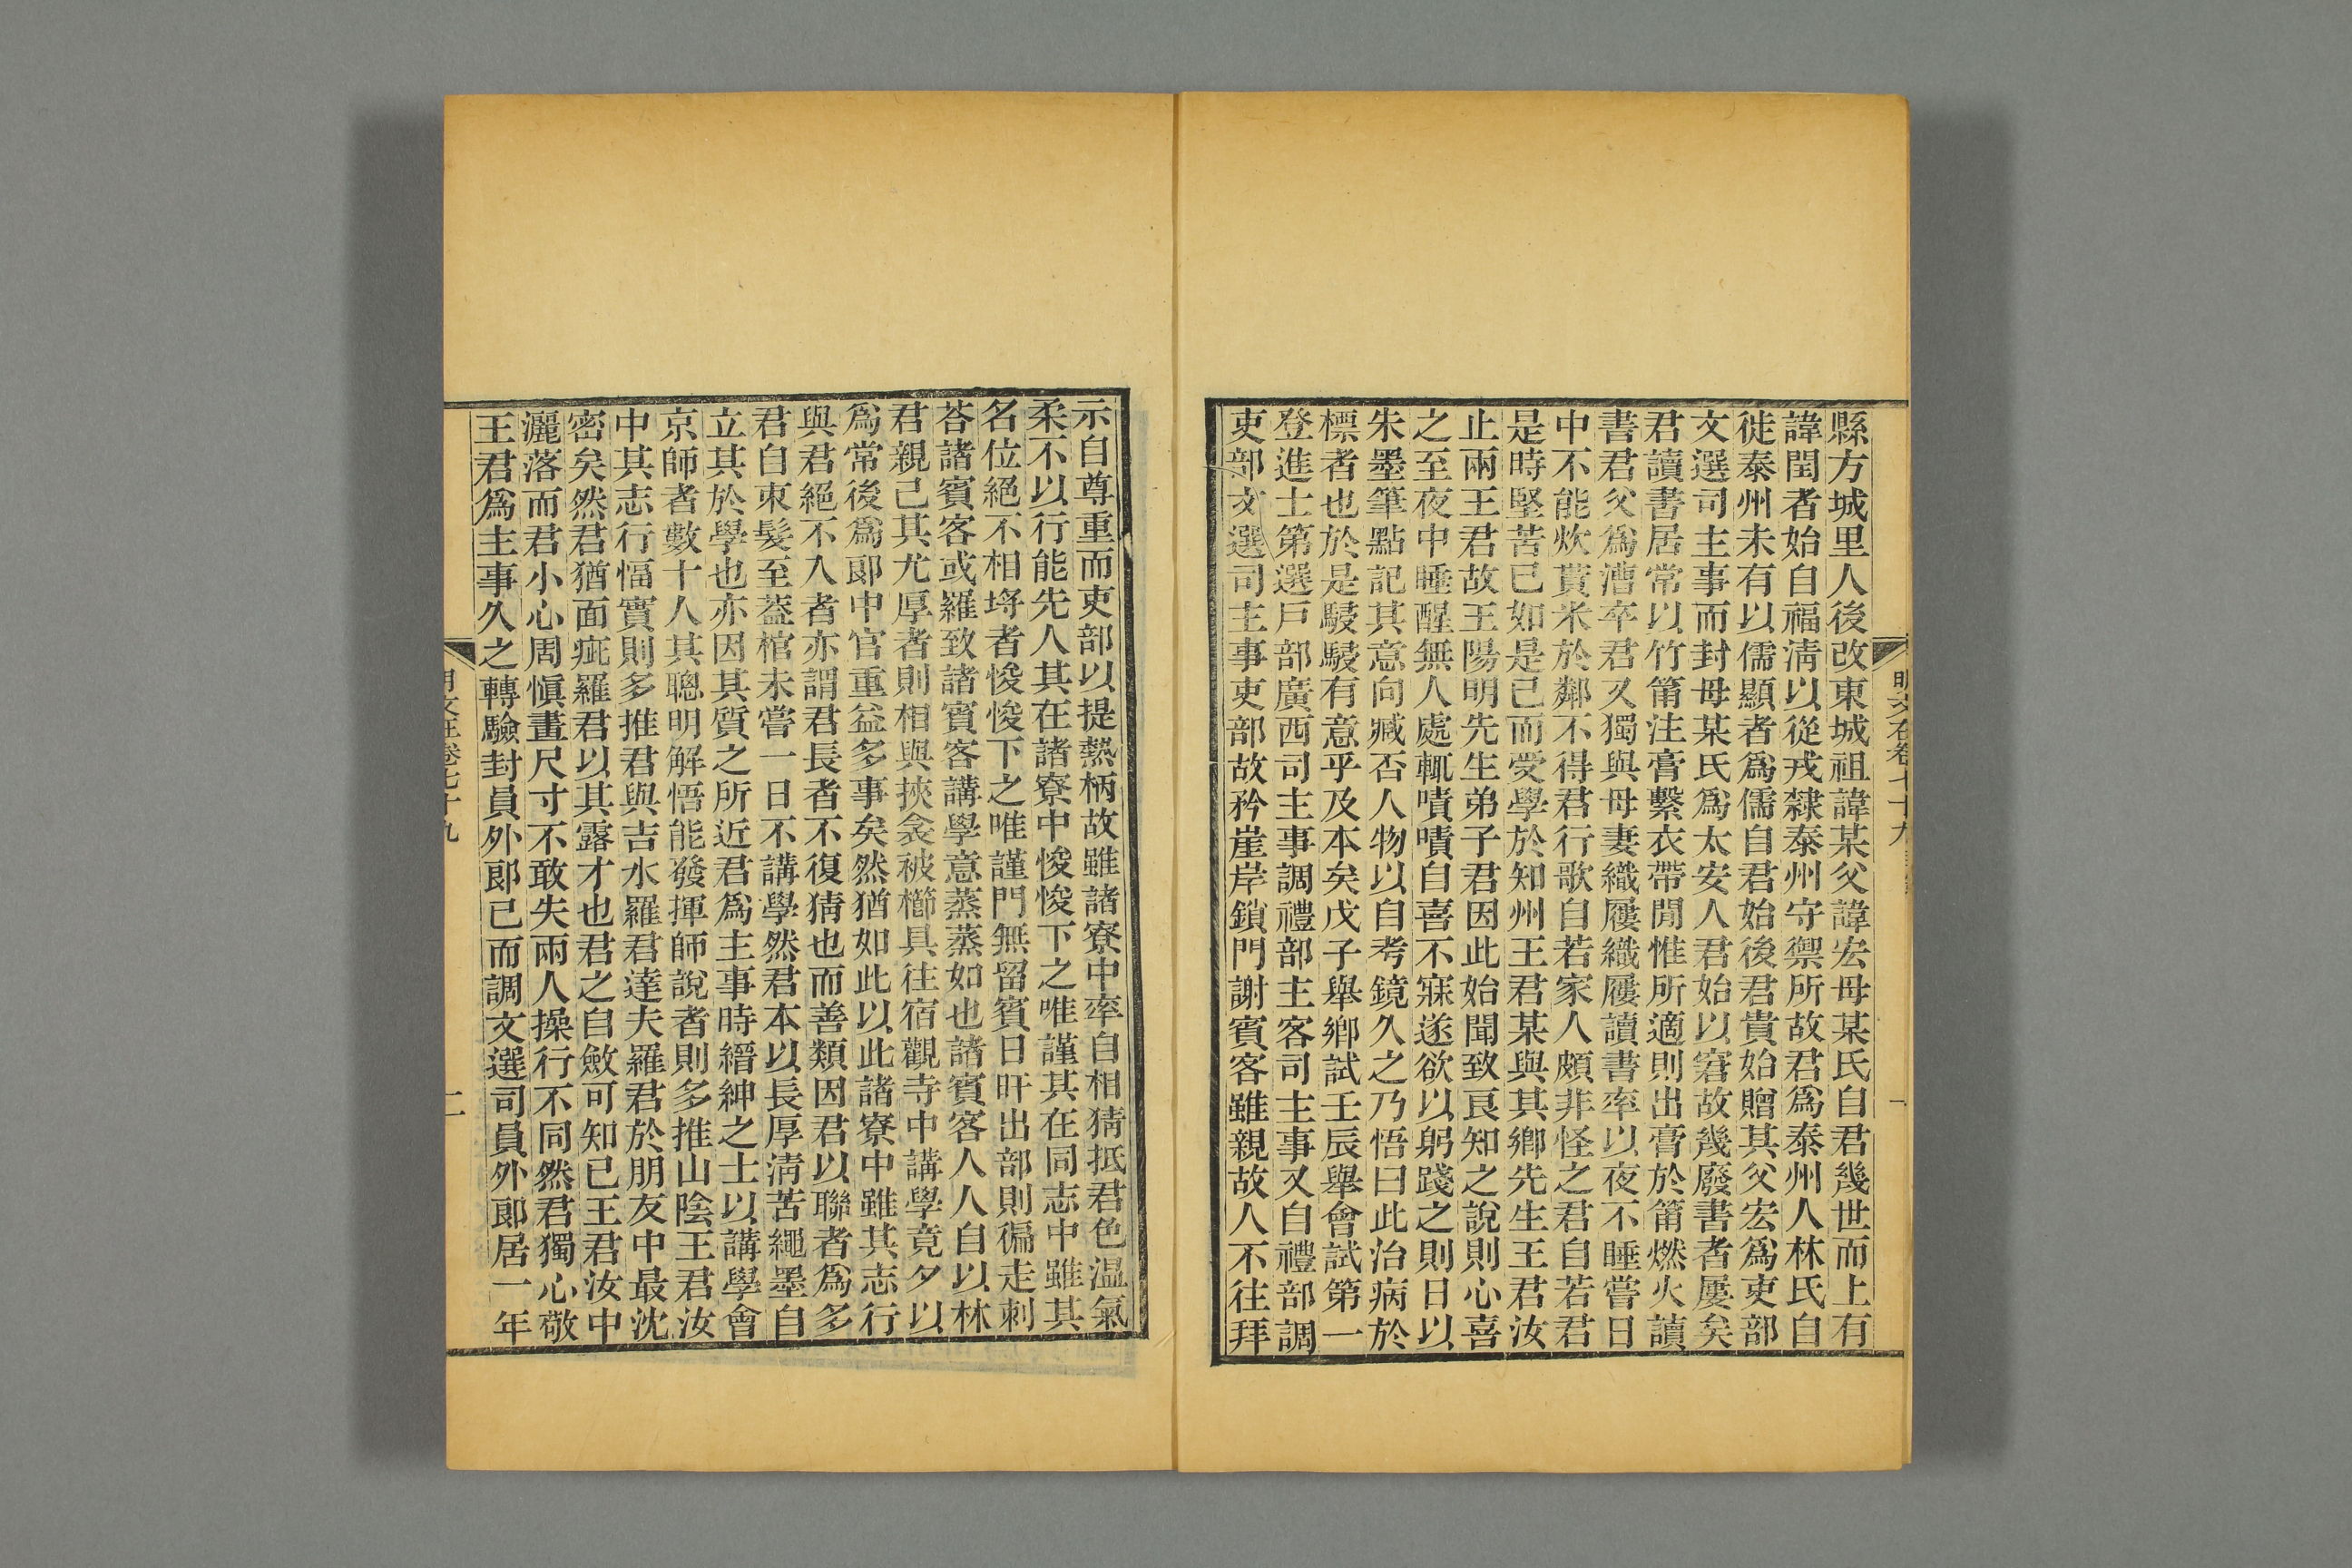 縣方城里人後改東城祖諱某父諱宏母某氏自君幾世而上有
諱閏者始自福淸以從戎隸泰州守禦所故君爲泰州人林氏自
徙泰州未有以儒顯者爲儒自君始後君貴始贈其父宏爲吏部
文選司主事而封母某氏爲太安人君始以窘故幾廢書者屢矣
君讀書居常以竹筩注膏繫衣帶閒惟所適則出膏於筩燃火讀
書君父爲漕卒君又獨與母妻織屨織屨讀書率以夜不睡嘗日
中不能炊貰米於鄰不得君行歌自若家人頗非怪之君自若君
是時堅苦已如是已而受學於知州王君某與其鄉先生王君汝
止兩王君故王陽明先生弟子君因此始聞致良知之說則心喜
之至夜中睡醒無人處輒嘖嘖自喜不寐遂欲以躬踐之則日以
朱墨筆點記其意向臧否人物以自考鏡久之乃悟曰此治病於
標者也於是駸駸有意乎及本矣戊子舉鄉試壬辰舉會試第一
登進士第選戶部廣西司主事調禮部主客司主事又自禮部調
吏部文選司主事吏部故矜崖岸鎖門謝賓客雖親故人不往拜
示自尊重而吏部以提熱柄故雖諸寮中率自相猜抵君色温氣
柔不以行能先人其在諸寮中悛悛下之唯謹其在同志中雖其
名位絕不相埒者悛悛下之唯謹門無留賓日旰出部則徧走刺
荅諸賓客或羅致諸賓客講學意蒸蒸如也諸賓客人人自以林
君親己其尤厚者則相與挾衾被櫛具往宿觀寺中講學竟夕以
爲常後爲郎中官重益多事矣然猶如此以此諸寮中雖其志行
與君絕不入者亦謂君長者不復猜也而善類因君以聯者爲多
君自束髮至葢棺未嘗一日不講學然君本以長厚淸苦繩墨自
立其於學也亦因其質之所近君爲主事時縉紳之士以講學會
京師者數十人其聰明解悟能發揮師說者則多推山陰王君汝
中其志行愊實則多推君與吉水羅君達夫羅君於朋友中最沈
密矣然君猶面疵羅君以其露才也君之自斂可知已王君汝中
灑落而君小心周愼晝尺寸不敢失兩人操行不同然君獨心敬
王君爲主事久之轉驗封員外郎已而調文選司員外郎居一年